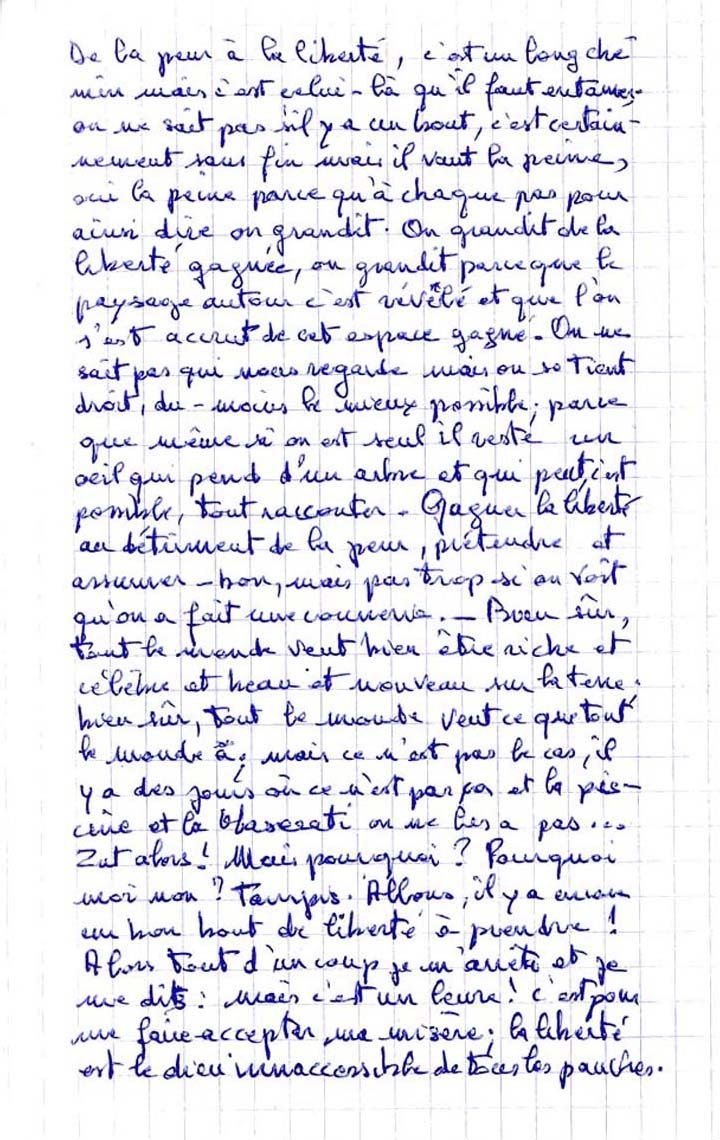 De la peur à la liberté, c'est un long che-
min mais c'est celui-là qu'il faut entamer.
on ne sait pas s'il y a un bout, c'est certain-
nement sans fin mais il vaut la peine,
oui la peine parce qu'à chaque pas pour
ainsi dire on grandit. On grandit de la
liberté gagnée, on grandit parce que le
paysage autour c'est révélé et que l'on
s'est accrut de cet espace gagné. On ne
sait pas qui nous regarde mais on se tient
droit, du-moins le mieux possible; parce
que même si on est seul il reste un
oeil qui pend d'un arbre et qui peut, c'est
possible, tout raccouter. Gagner la liberté
au détriment de la peur, prétendre et
assumer - bon, mais pas trop si on voit
qu'on a fait une connerie. - Bien sûr,
tout le monde veut bien être riche et
célèbre et beau et nouveau sur la terre.
bien sûr, tout le monde veut ce que tout
le monde a; mais ce n'est pas le cas, il
y a des jours où ce n'est pas ça et la pis-
cine et la Maserati on ne les a pas...
Zut alors! Mais pourquoi? Pourquoi
moi non? Tampis. Allons, il y a encore
un bon bout de liberté à prendre!
Alors tout d'un coup je m'arrête et je
me dis: mais c'est un leurre! c'est pour
me faire accepter ma misère; la liberté
est le dieu innaccessible de tous les pauvres.